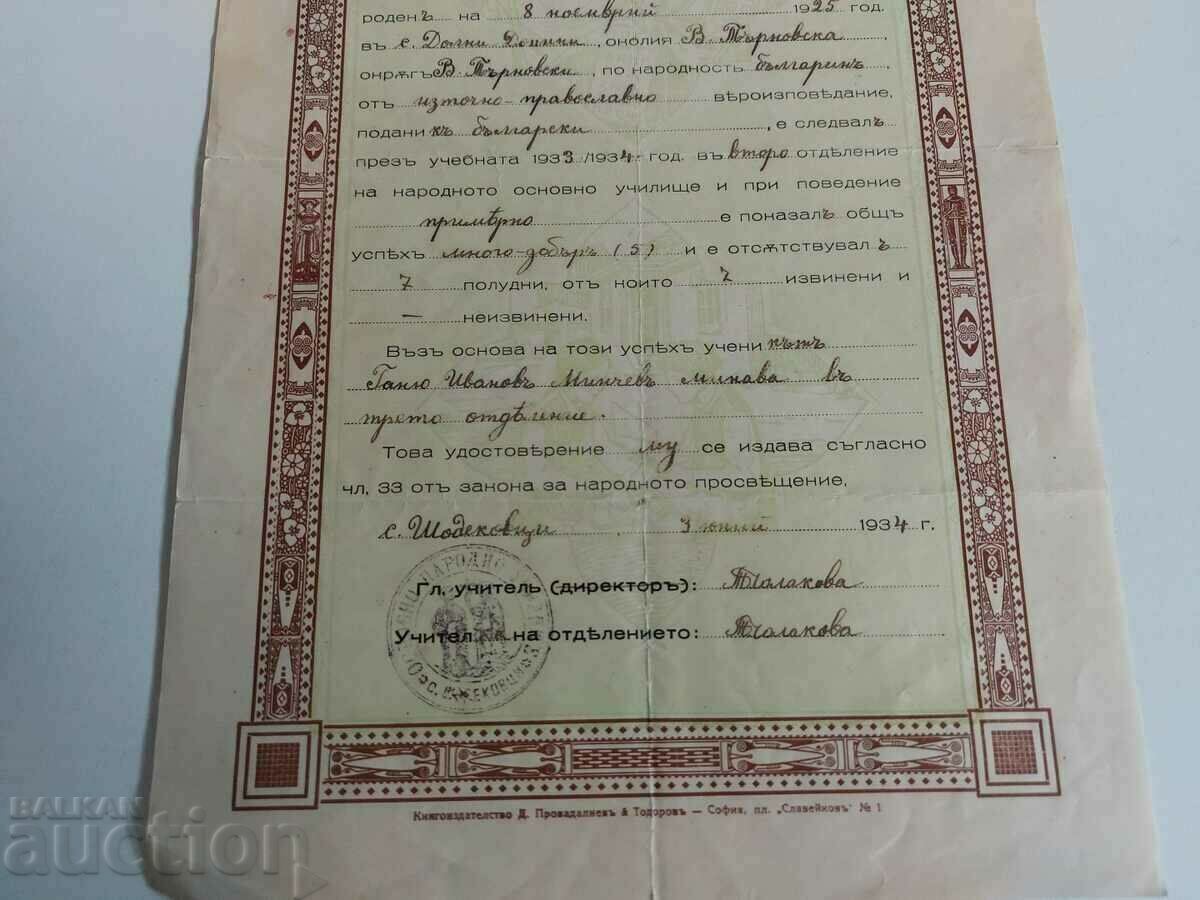 роденъ на 8 ноемврий 1925 год.
въ с. Долни Донини, околия В. Търновска,
окрѫгъ В. Търновски, по народность българинъ,
отъ източно-православно вѣроизповѣдание,
подани къ български, е следвалъ
презъ учебната 1933/1934 год. въ второ отдѣление
на народното основно училище и при поведение
примѣрно е показалъ общъ
успѣхъ много-добъръ (5) и е отсѫтствувал ъ
7 полудни, отъ които 7 извинени и
— неизвинени.
Възъ основа на този успѣхъ учени кътъ
Ганю Ивановъ Минчевъ минава въ
трето отдѣление.
Това удостовѣрение му се издава съгласно
чл. 33 отъ закона за народното просвѣщение,
с. Шодековци, 3 юний 1934 г.
Гл. учитель (директоръ): Тчолакова
Учител ка на отдѣлението: Тчолакова
НАРОДНО
Книгоиздателство Д. Провадалиевъ & Тодоровъ — София, пл. „Славейковъ" № 1
БАЛКАН
auction